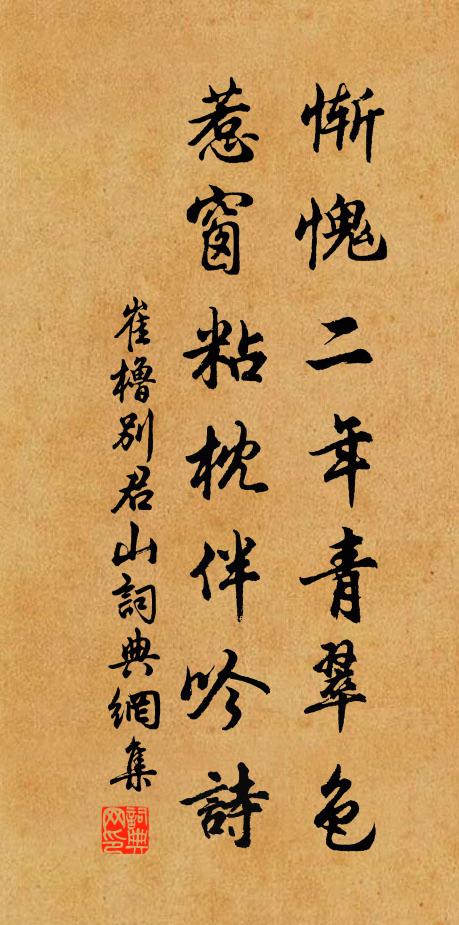 慚愧二年青翠色
惹窗粘枕伴吟詩
崔櫓別君山詞典網集
詞典网印